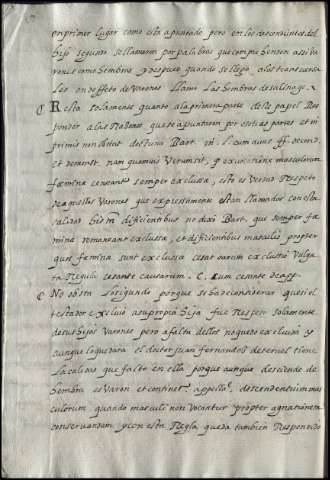 en primer lugar como esta apuntado pero en los descendientes del
hijo segundo se llamaron por palabras que comprehenden assi va
rones como hembras y despues quando se llegó a los transversa
les en deffeto de Varones llamó las hembras de su linage.
Resta solamente quanto a la primera parte deste papel Res
ponder a las Razones que se apuntaron por otras partes et in
primis non obstat doctrina Bart. in l.
et sequent. nam quamvis verum sit, q exeuntiam masculorum
fæmina censeatur semper exclussa, esto es verdad Respeto
de aquellos Varones que expressamente estan llamados con esta
calidad his tm difficientibus no dixo Bart. que semper fæ
mina remaneant exclussa, et difficientibus masculis propter
quos fæmina sunt exclussa cesat earum exclussio Vulga
ta Regula cesante causarum. C. cum cesante de app.
No obsta lo segundo porque se ha de considerar que si el
testador excluió a su propia hija fue Respeto solamente
de sus hijos Varones pero a falta dellos no quedó excluida y
aunque lo quedara el doctor Juan fernandez de
la calidad que faltó en ella porque aunque desciende de
hembra es Varon et continetur appellne. descendentium mas
culorum quando masculi non vocantur propter agnationem
conservandam y con esta Regla queda tambien Respondido